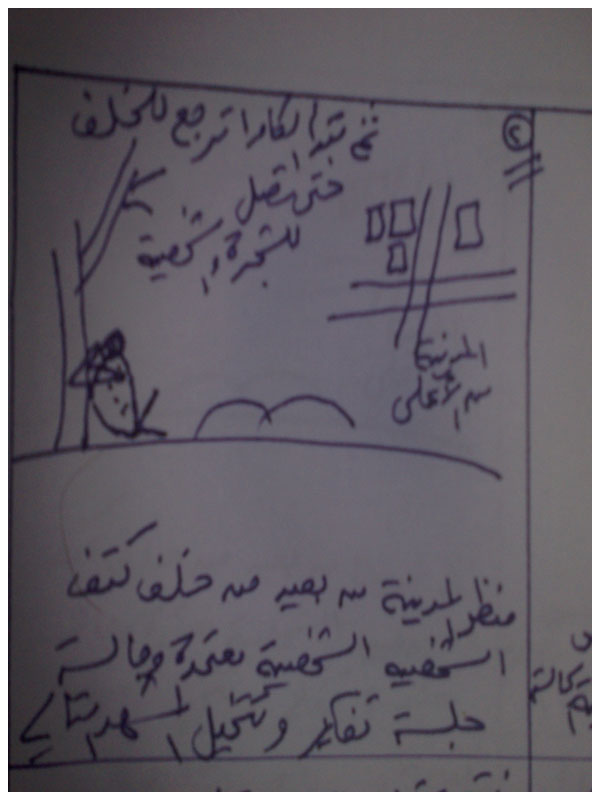 ثم تبدأ الكاميرا ترجع للخلف
حتى تصل
للشجرة والشخصية
المدينة
من الأعلى
منظر المدينة من بعيد من خلف كتف
الشخصية الشخصية جالسة
جلسة تفكير وتتخيل المشهد